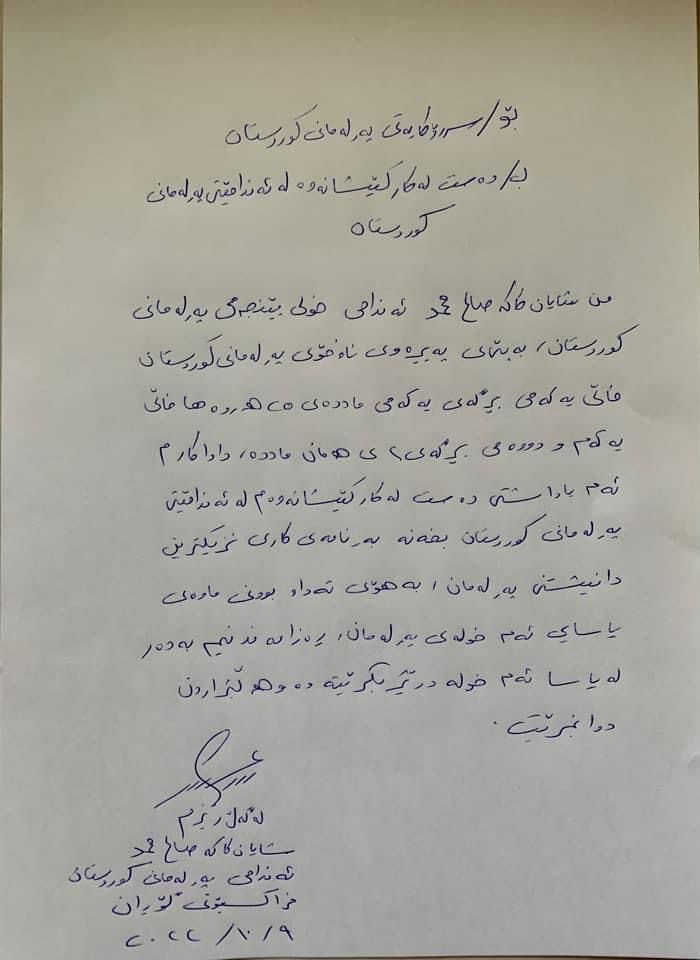 بۆ/ سەرۆکایەتی پەرلەمانی کوردستان
ب/ دەست لەکارکێشانەوە لە ئەندامێتی پەرلەمانی
کوردستان
من شایان کاکە صالح محمد ئەندامی خولی پێنجەمی پەرلەمانی
کوردستان، بەپێی پەیڕەوی ناوخۆی پەرلەمانی کوردستان
خاڵی یەکەمی بڕگەی یەکەمی ماددەی ٥٠ هەروەها خاڵی
یەکەم و دووەمی بڕگەی ٢ ی هەمان ماددە، داواکارم
ئەم یاداشتی دەست لەکارکێشانەوەم لە ئەندامێتی
پەرلەمانی کوردستان بخەنە بەرنامەی کاری نزیکترین
دانیشتنی پەرلەمان، بەهۆی تەواو بوونی ماوەی
یاسایی ئەم خولەی پەرلەمان، ڕەزامەند نیم بەدەر
لە یاسا ئەم خولە درێژ بکرێتەوە و هەڵبژاردن
دوا بخرێت.
لەگەڵ ڕێزم
شایان کاکە صالح محمد
ئەندامی پەرلەمانی کوردستان
فراکسیۆنی گۆڕان
٢٠٢٢/١٠/٩